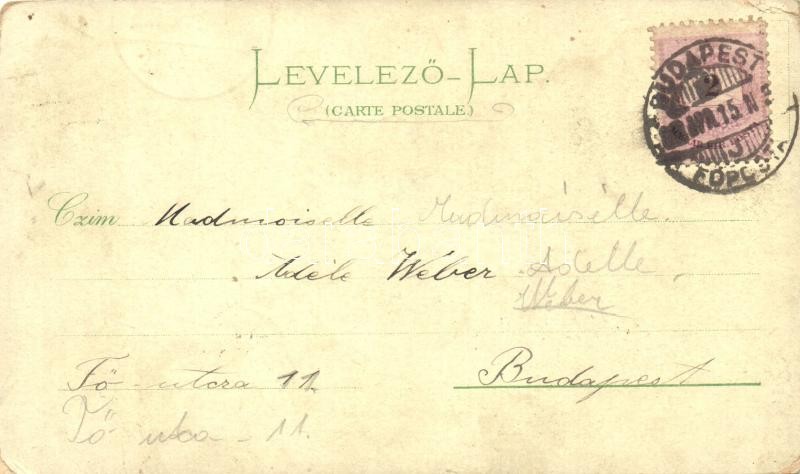 LEVELEZŐ-LAP.
(CARTE POSTALE.)
BUDAPEST
2
APR. 15. N
FŐPOSTA
Czim Madmoiselle Madmaiselle.
Adéle Weber Adelle
Weber
Fő-utcza 11. Budapest
Fő utca - 11.